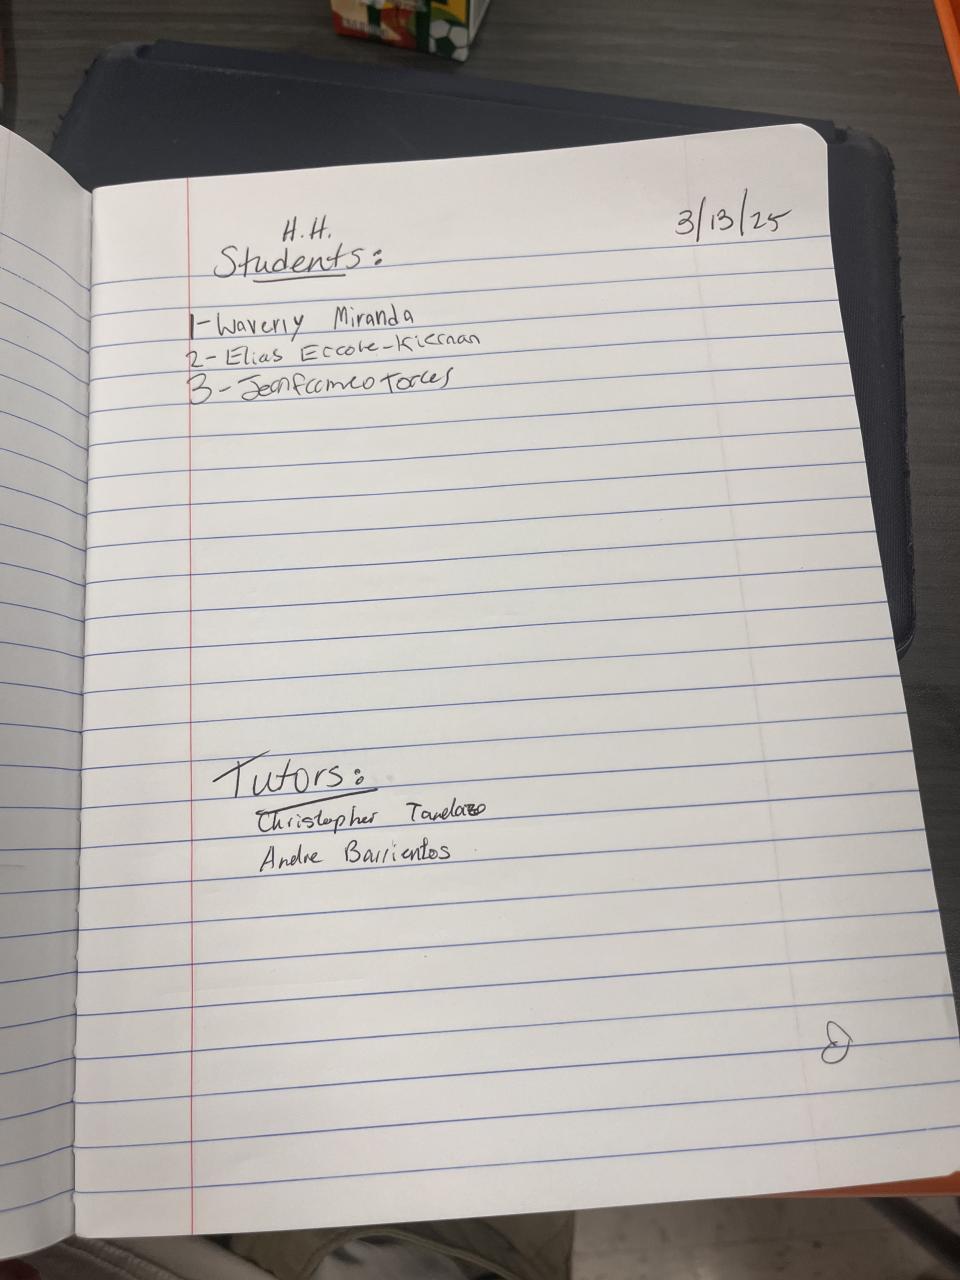 H.H.
Students:
3/13/25
1-Waverly Miranda
2-Elias Eccove-Kiernan
3-Torres
Tutors:
Christopher Tandazo
Andre Barrientos